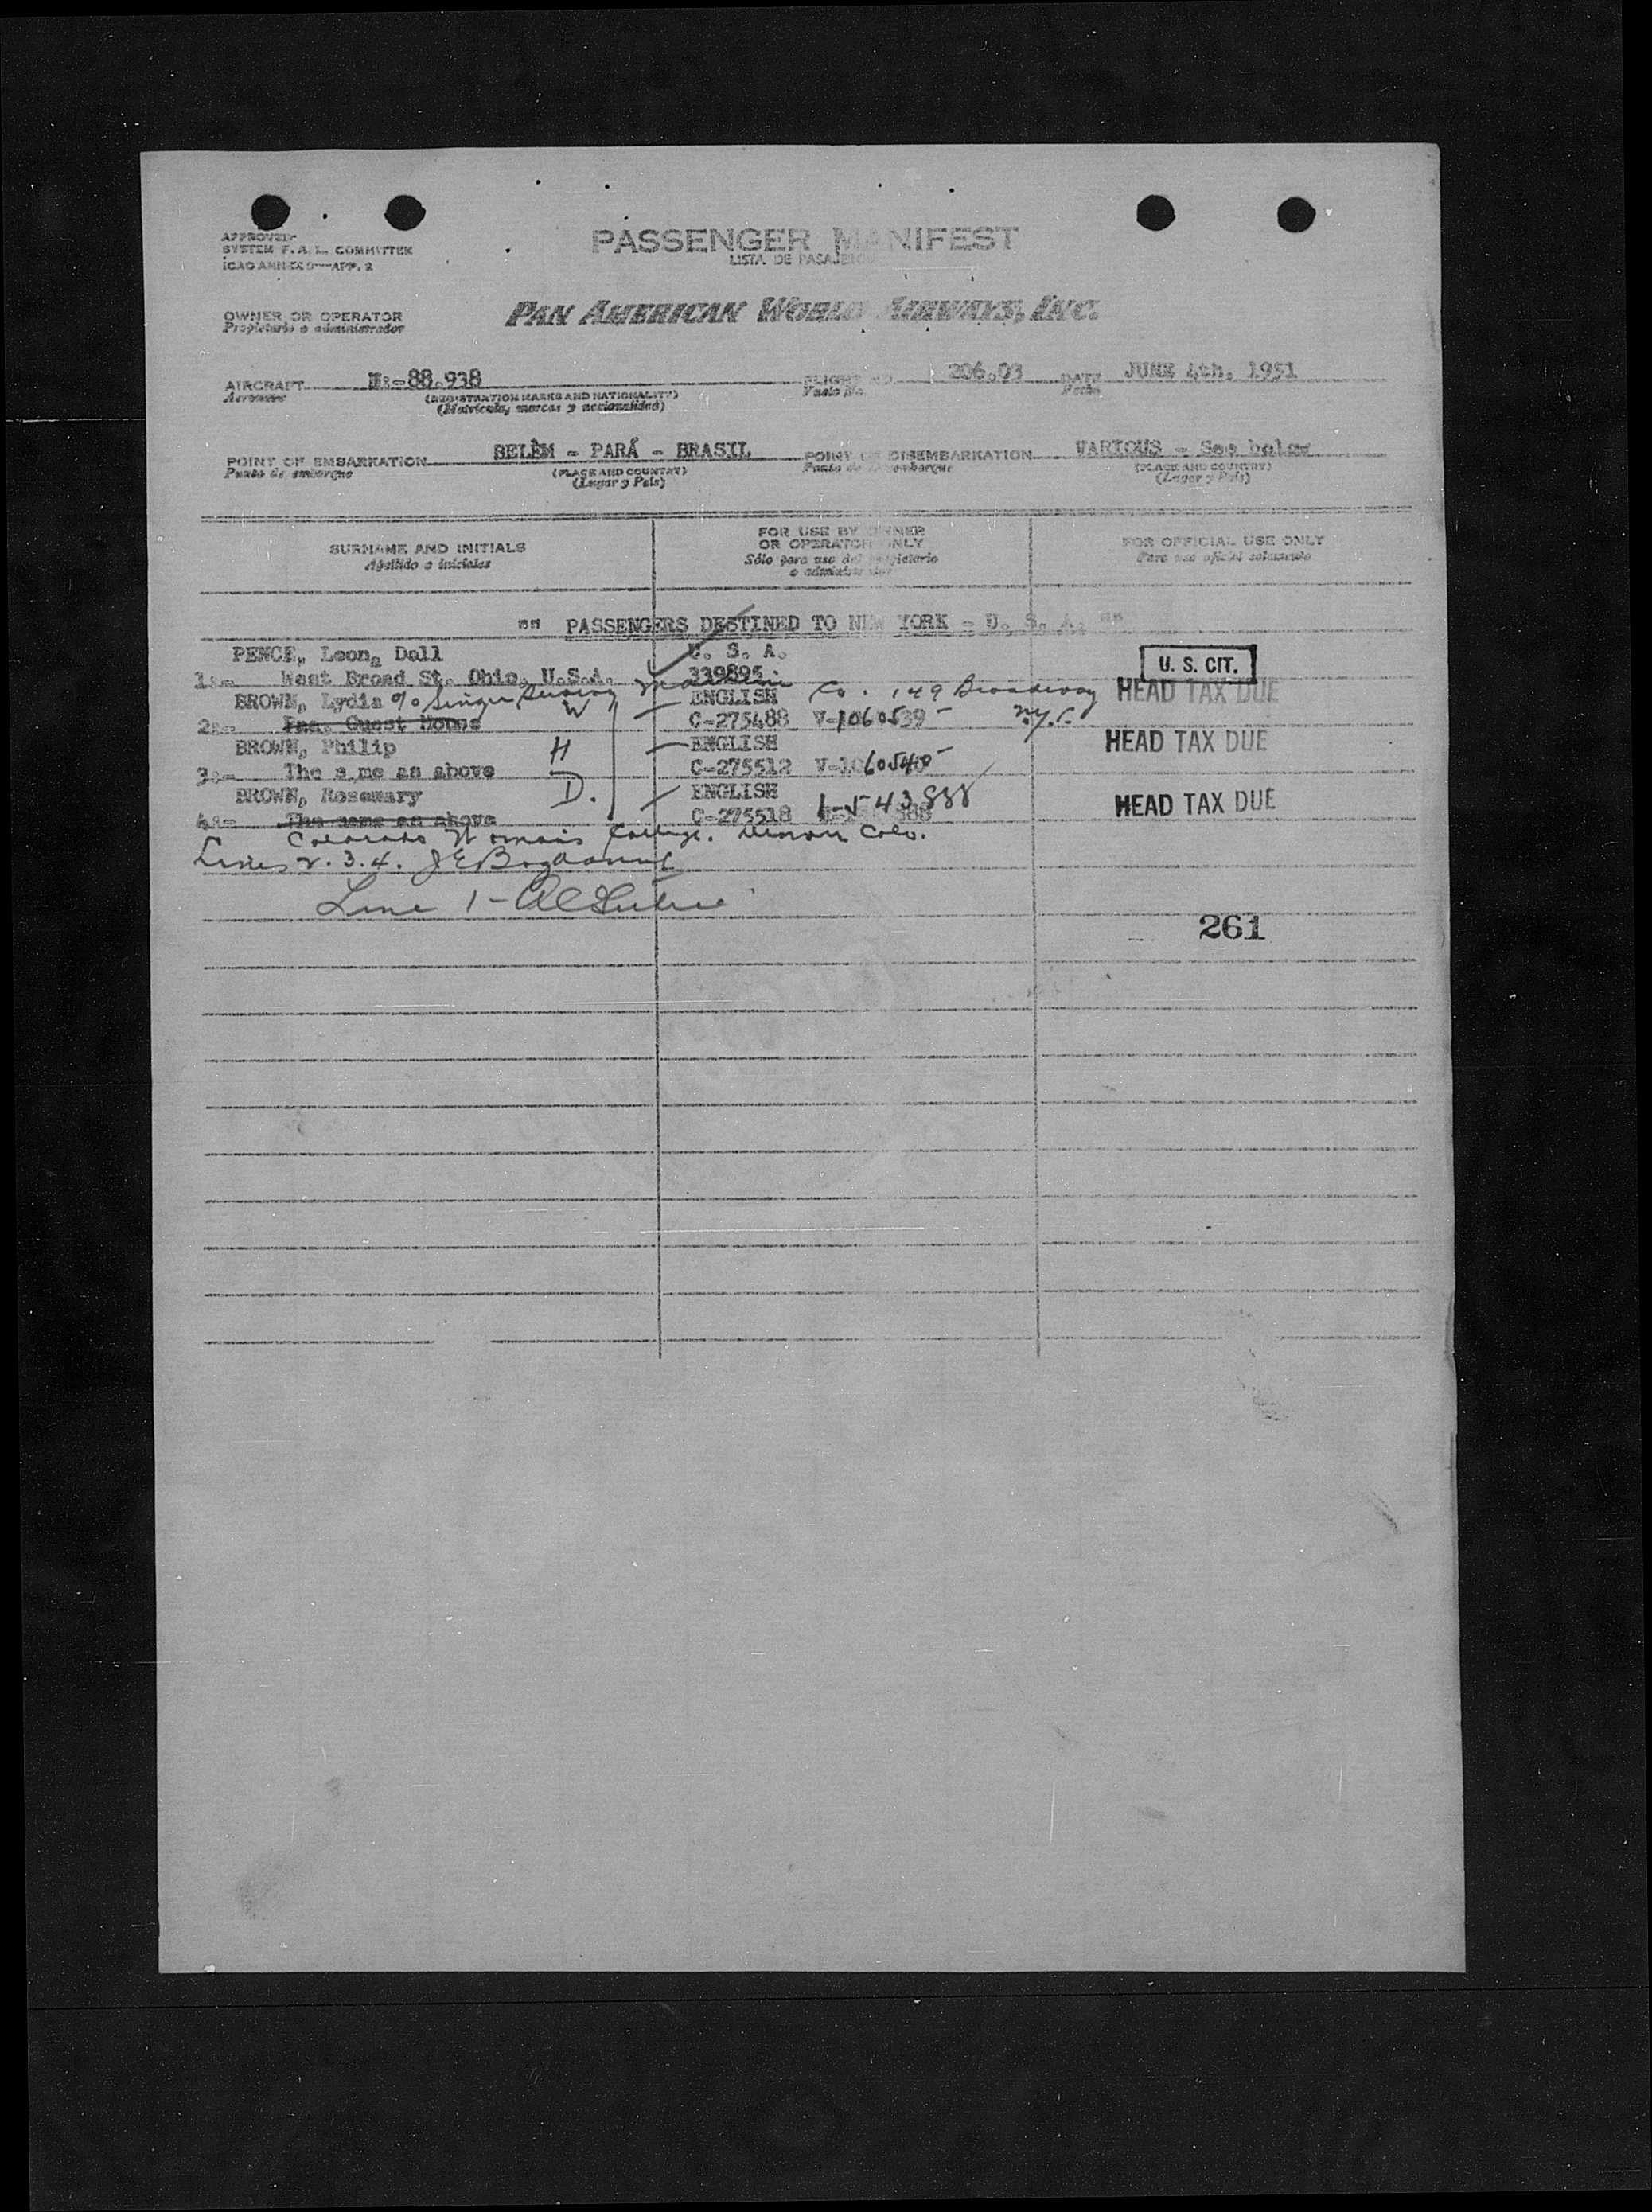 APPROVED
SYSTEM F.A.L. COMMITTEE
ICAO ANNEX 9—APP. 2
PASSENGER MANIFEST
LISTA DE PASAJEROS
OWNER OR OPERATOR
Propietario o administrador
PAN AMERICAN WORLD AIRWAYS, INC.
AIRCRAFT N:-88.938 FLIGHT NO. 206.03 DATE JUNE 4th, 1951
Aeronave (REGISTRATION MARKS AND NATIONALITY) Vuelo No. Fecha
(Matrícula, marcas y nacionalidad)
POINT OF EMBARKATION BELÈM - PARÁ - BRASIL POINT OF DISEMBARKATION VARIOUS - See below
Punto de embarque (PLACE AND COUNTRY) Punto de desembarque (PLACE AND COUNTRY)
(Lugar y País) (Lugar y País)
SURNAME AND INITIALS
Apellido e iniciales
FOR USE BY OWNER
OR OPERATOR ONLY
Sólo para uso del propietario
o administrador
FOR OFFICIAL USE ONLY
Para uso oficial solamente
"" PASSENGERS DESTINED TO NEW YORK - U. S. A. ""
PENCE, Leon, Dell U. S. A.
1:- West Broad St. Ohio, U.S.A. 339895 U. S. CIT.
BROWN, Lydia c/o Singer Sewing Machine ENGLISH Co. 149 Broadway HEAD TAX DUE
2:- Paa. Guest House W C-275488 V-1060539 N.Y.C.
BROWN, Philip H ENGLISH HEAD TAX DUE
3:- The same as above C-275512 V-1060540
BROWN, Rosemary D. ENGLISH
4:- The same as above C-275518 1-543888 HEAD TAX DUE
Colorado Womans College. Denver Colo.
Lines 2.3.4.
Line 1-
261